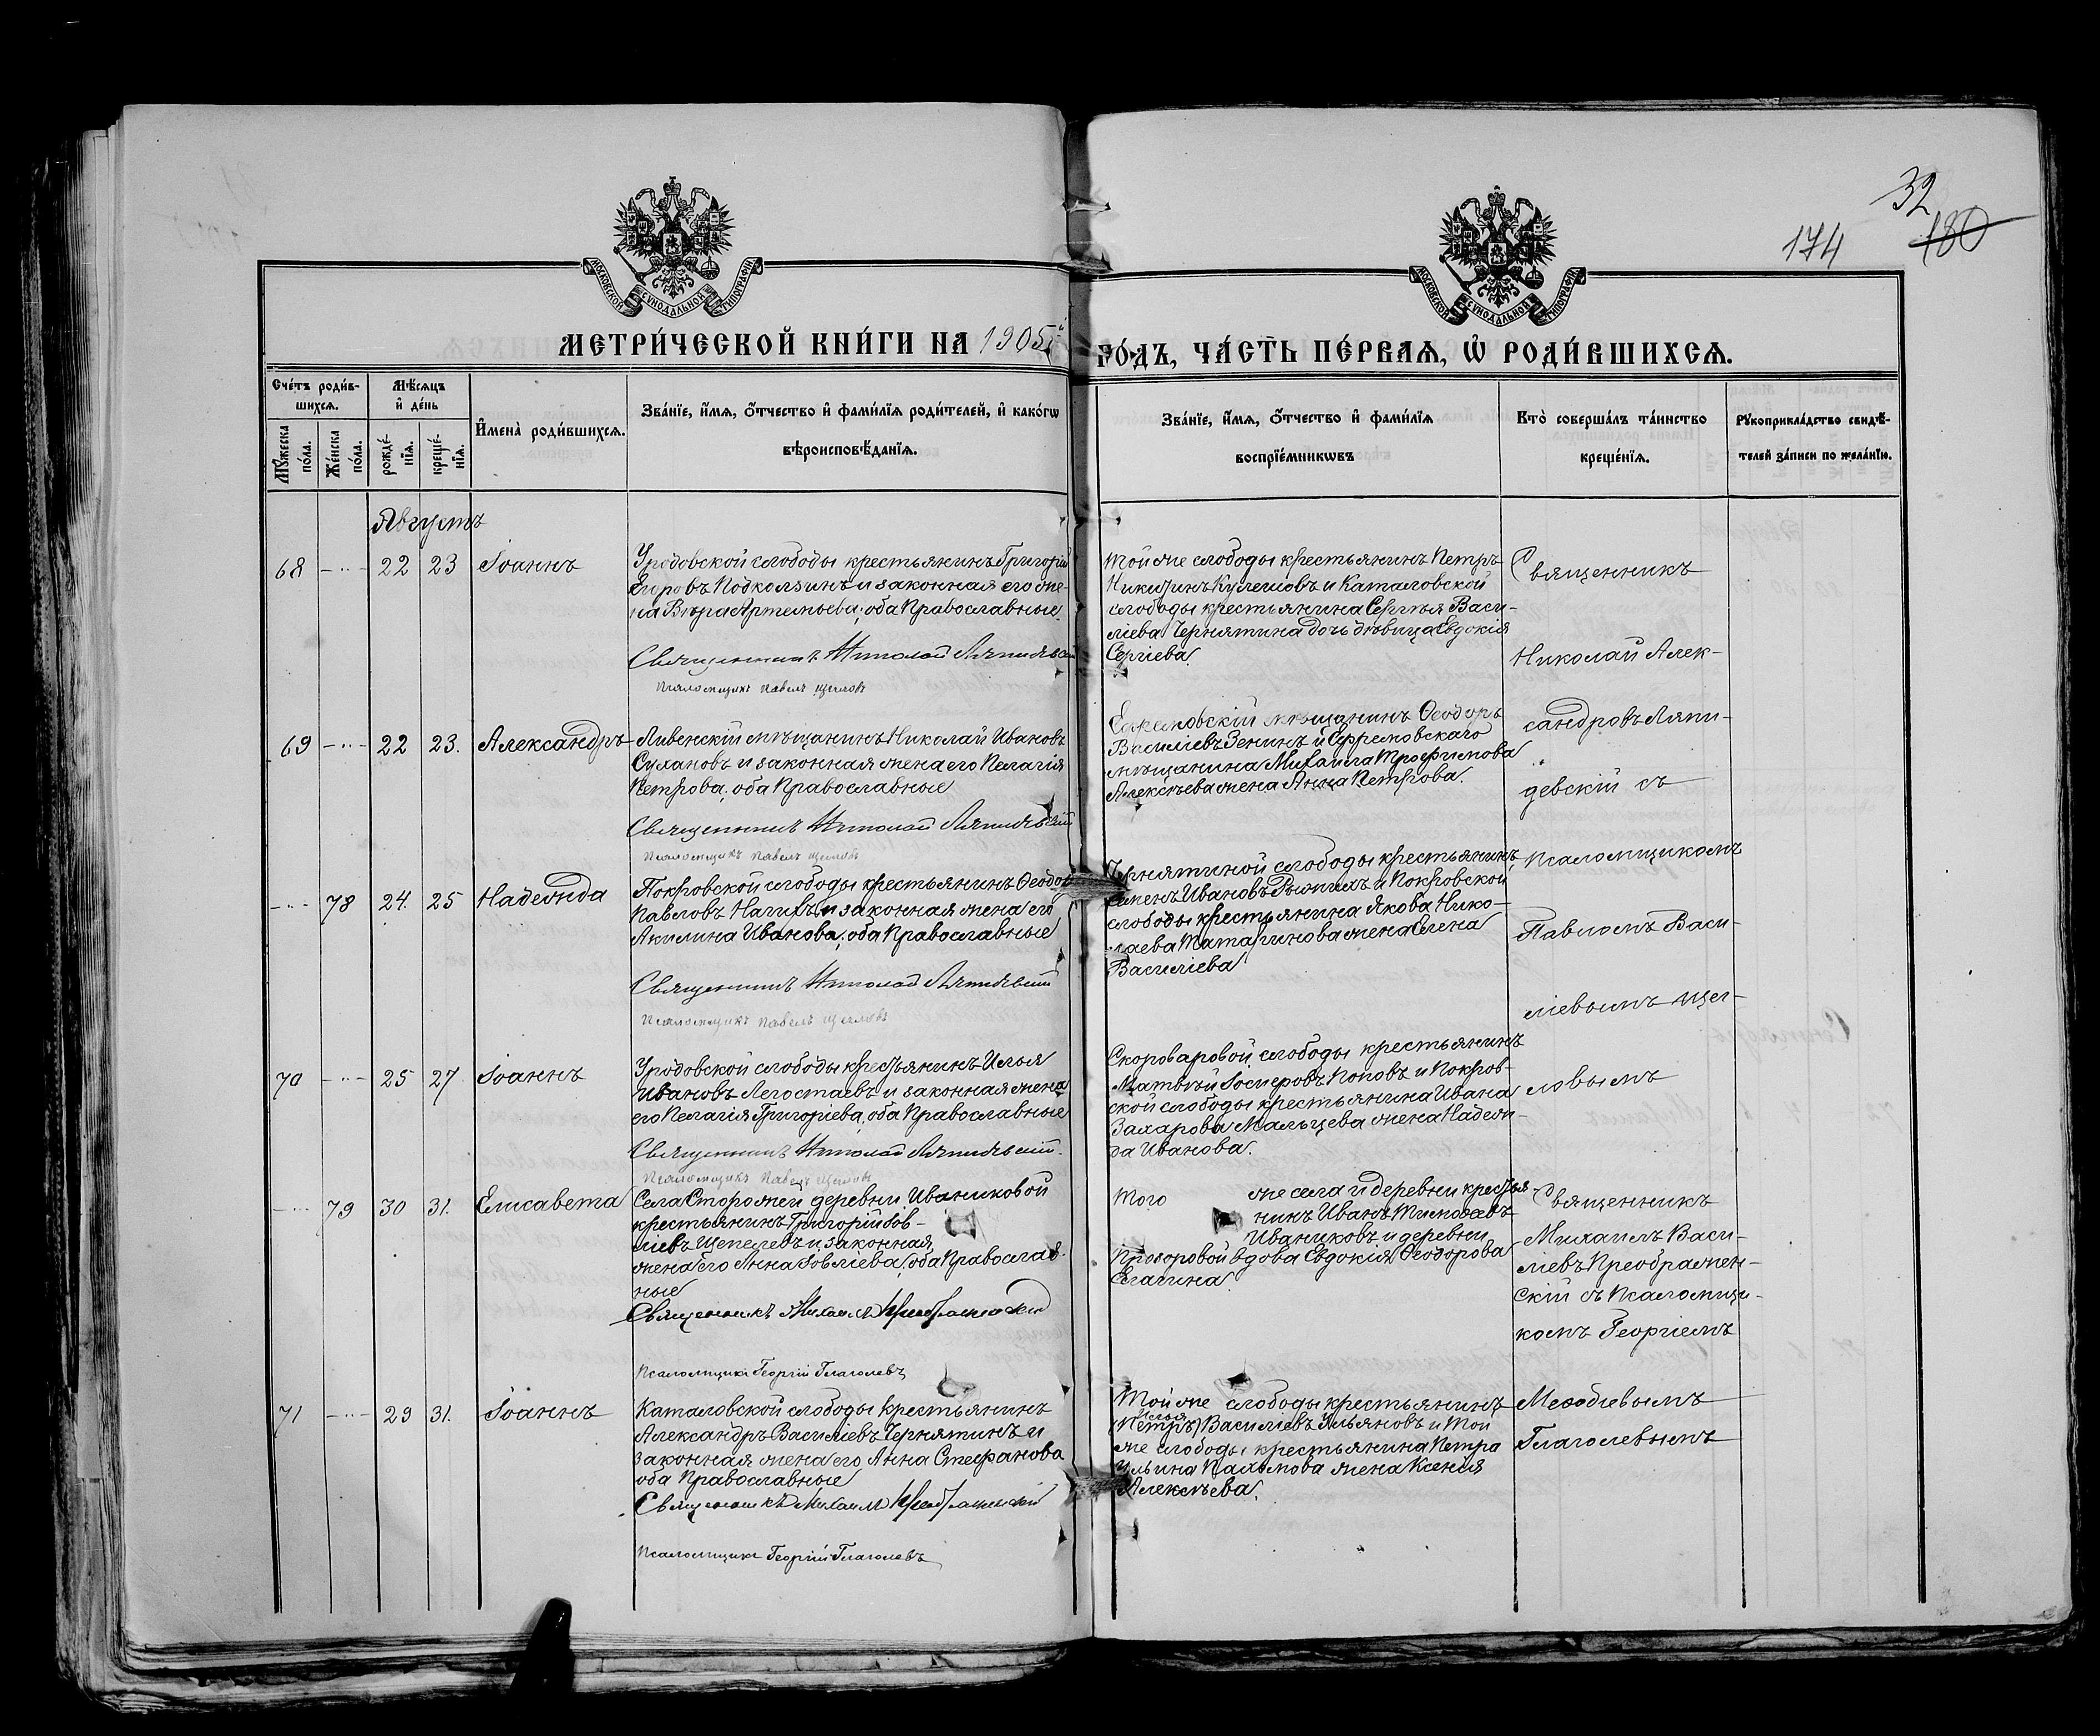 32
174 180
МОСКОВСКОЙ СУНОДАЛЬНОЙ ТИПОГРАФІИ
МОСКОВСКОЙ СУНОДАЛЬНОЙ ТИПОГРАФІИ
МЕТРИ́ЧЕСКОЙ КНИ́ГИ НА 1905й
ГО́ДЪ, ЧА́СТЬ ПЕ́РВАѦ, Ѡ҆ РОДИ́ВШИХСѦ.
Сче́тъ роди́в-
шихсѧ.
Мꙋ́жеска по́ла.
Же́нска по́ла.
Мѣ́сѧцъ
и҆ де́нь
рожде́-
нїѧ.
креще́-
нїѧ.
И҆мена̀ роди́вшихсѧ.
Зва́нїе, и҆́мѧ, о҆́тчество и҆ фами́лїѧ роди́телей, и҆ како́гѡ
вѣроисповѣ́данїѧ.
Зва́нїе, и҆́мѧ, о҆́тчество и҆ фами́лїѧ
воспрїе́мникѡвъ
Кто̀ соверша́лъ та́инство
креще́нїѧ.
Рꙋкоприкла́дство свидѣ́-
телей за́писи по жела́нїю.
Августъ
68 -"- 22 23 Іоаннъ
Уродовской слободы крестьянинъ Григорій
Егоровъ Подколзинъ и законная его же-
на Вѣра Артемьева, оба Православные.
Священникъ Николай Ляпидевскій
Псаломщикъ Павелъ Щегловъ
Той же слободы крестьянинъ Петръ
Никитинъ Кулешовъ и Каталовской
слободы крестьянина Сергѣя Васи-
ліева Чернятина дочь дѣвица Евдокія
Сергіева.
Священникъ
Николай Алек-
сандровъ Ляпи-
девскій съ
псаломщикомъ
Павломъ Васи-
ліевымъ Щег-
ловымъ
69 -"- 22 23. Александръ
Ливенскій мѣщанинъ Николай Ивановъ
Сухановъ и законная жена его Пелагія
Петрова, оба Православные
Священникъ Николай Ляпидевскій
Псаломщикъ Павелъ Щегловъ
Ефремовскій мѣщанинъ Ѳеодоръ
Василіевъ Зенинъ и Ефремовскаго
мѣщанина Михаила Трофимова
Алексѣева жена Анна Петрова.
-"- 78 24. 25 Надежда
Покровской слободы крестьянинъ Ѳеодоръ
Павловъ Нагихъ и законная жена его
Акилина Иванова, оба Православные
Священникъ Николай Ляпидевскій
Псаломщикъ Павелъ Щегловъ
Чернятиной слободы крестьянинъ
Семенъ Ивановъ Рыжихъ и Покровской
слободы крестьянина Якова Нико-
лаева Татаринова жена Елена
Василіева
70 -"- 25 27 Іоаннъ
Уродовской слободы крестьянинъ Илья
Ивановъ Легостаевъ и законная жена
его Пелагія Григоріева, оба Православные
Священникъ Николай Ляпидевскій.
Псаломщикъ Павелъ Щегловъ
Скороваровой слободы крестьянинъ
Матвѣй Іосифовъ Поповъ и Покров-
ской слободы крестьянина Ивана
Захарова Мальцева жена Надеж-
да Иванова.
-"- 79 30 31. Елисавета
Села Сторожей деревни Иваниковой
крестьянинъ Григорій Іов-
ліевъ Щепелевъ и законная
жена его Анна Іовліева, оба Православ-
ные
Священникъ Михаилъ Преображенскій
Псаломщикъ Георгій Глаголевъ
Того же села и деревни крестья-
нинъ Иванъ Тимоѳеевъ
Иваниковъ и деревни
Прозоровой вдова Евдокія Ѳеодорова
Елагина.
Священникъ
Михаилъ Васи-
ліевъ Преображен-
скій съ Псаломщи-
комъ Георгіемъ
Меѳодіевымъ
Глаголевымъ
71 -"- 29 31. Іоаннъ
Каталовской слободы крестьянинъ
Александръ Василіевъ Чернятинъ и
законная жена его Анна Стефанова
оба Православные
Священникъ Михаилъ Преображенскій
Псаломщикъ Георгій Глаголевъ
Той же слободы крестьянинъ
Илья
(Петръ) Василіевъ Ульяновъ и той
же слободы крестьянина Петра
Ильина Пахомова жена Ксенія
Алексѣева.